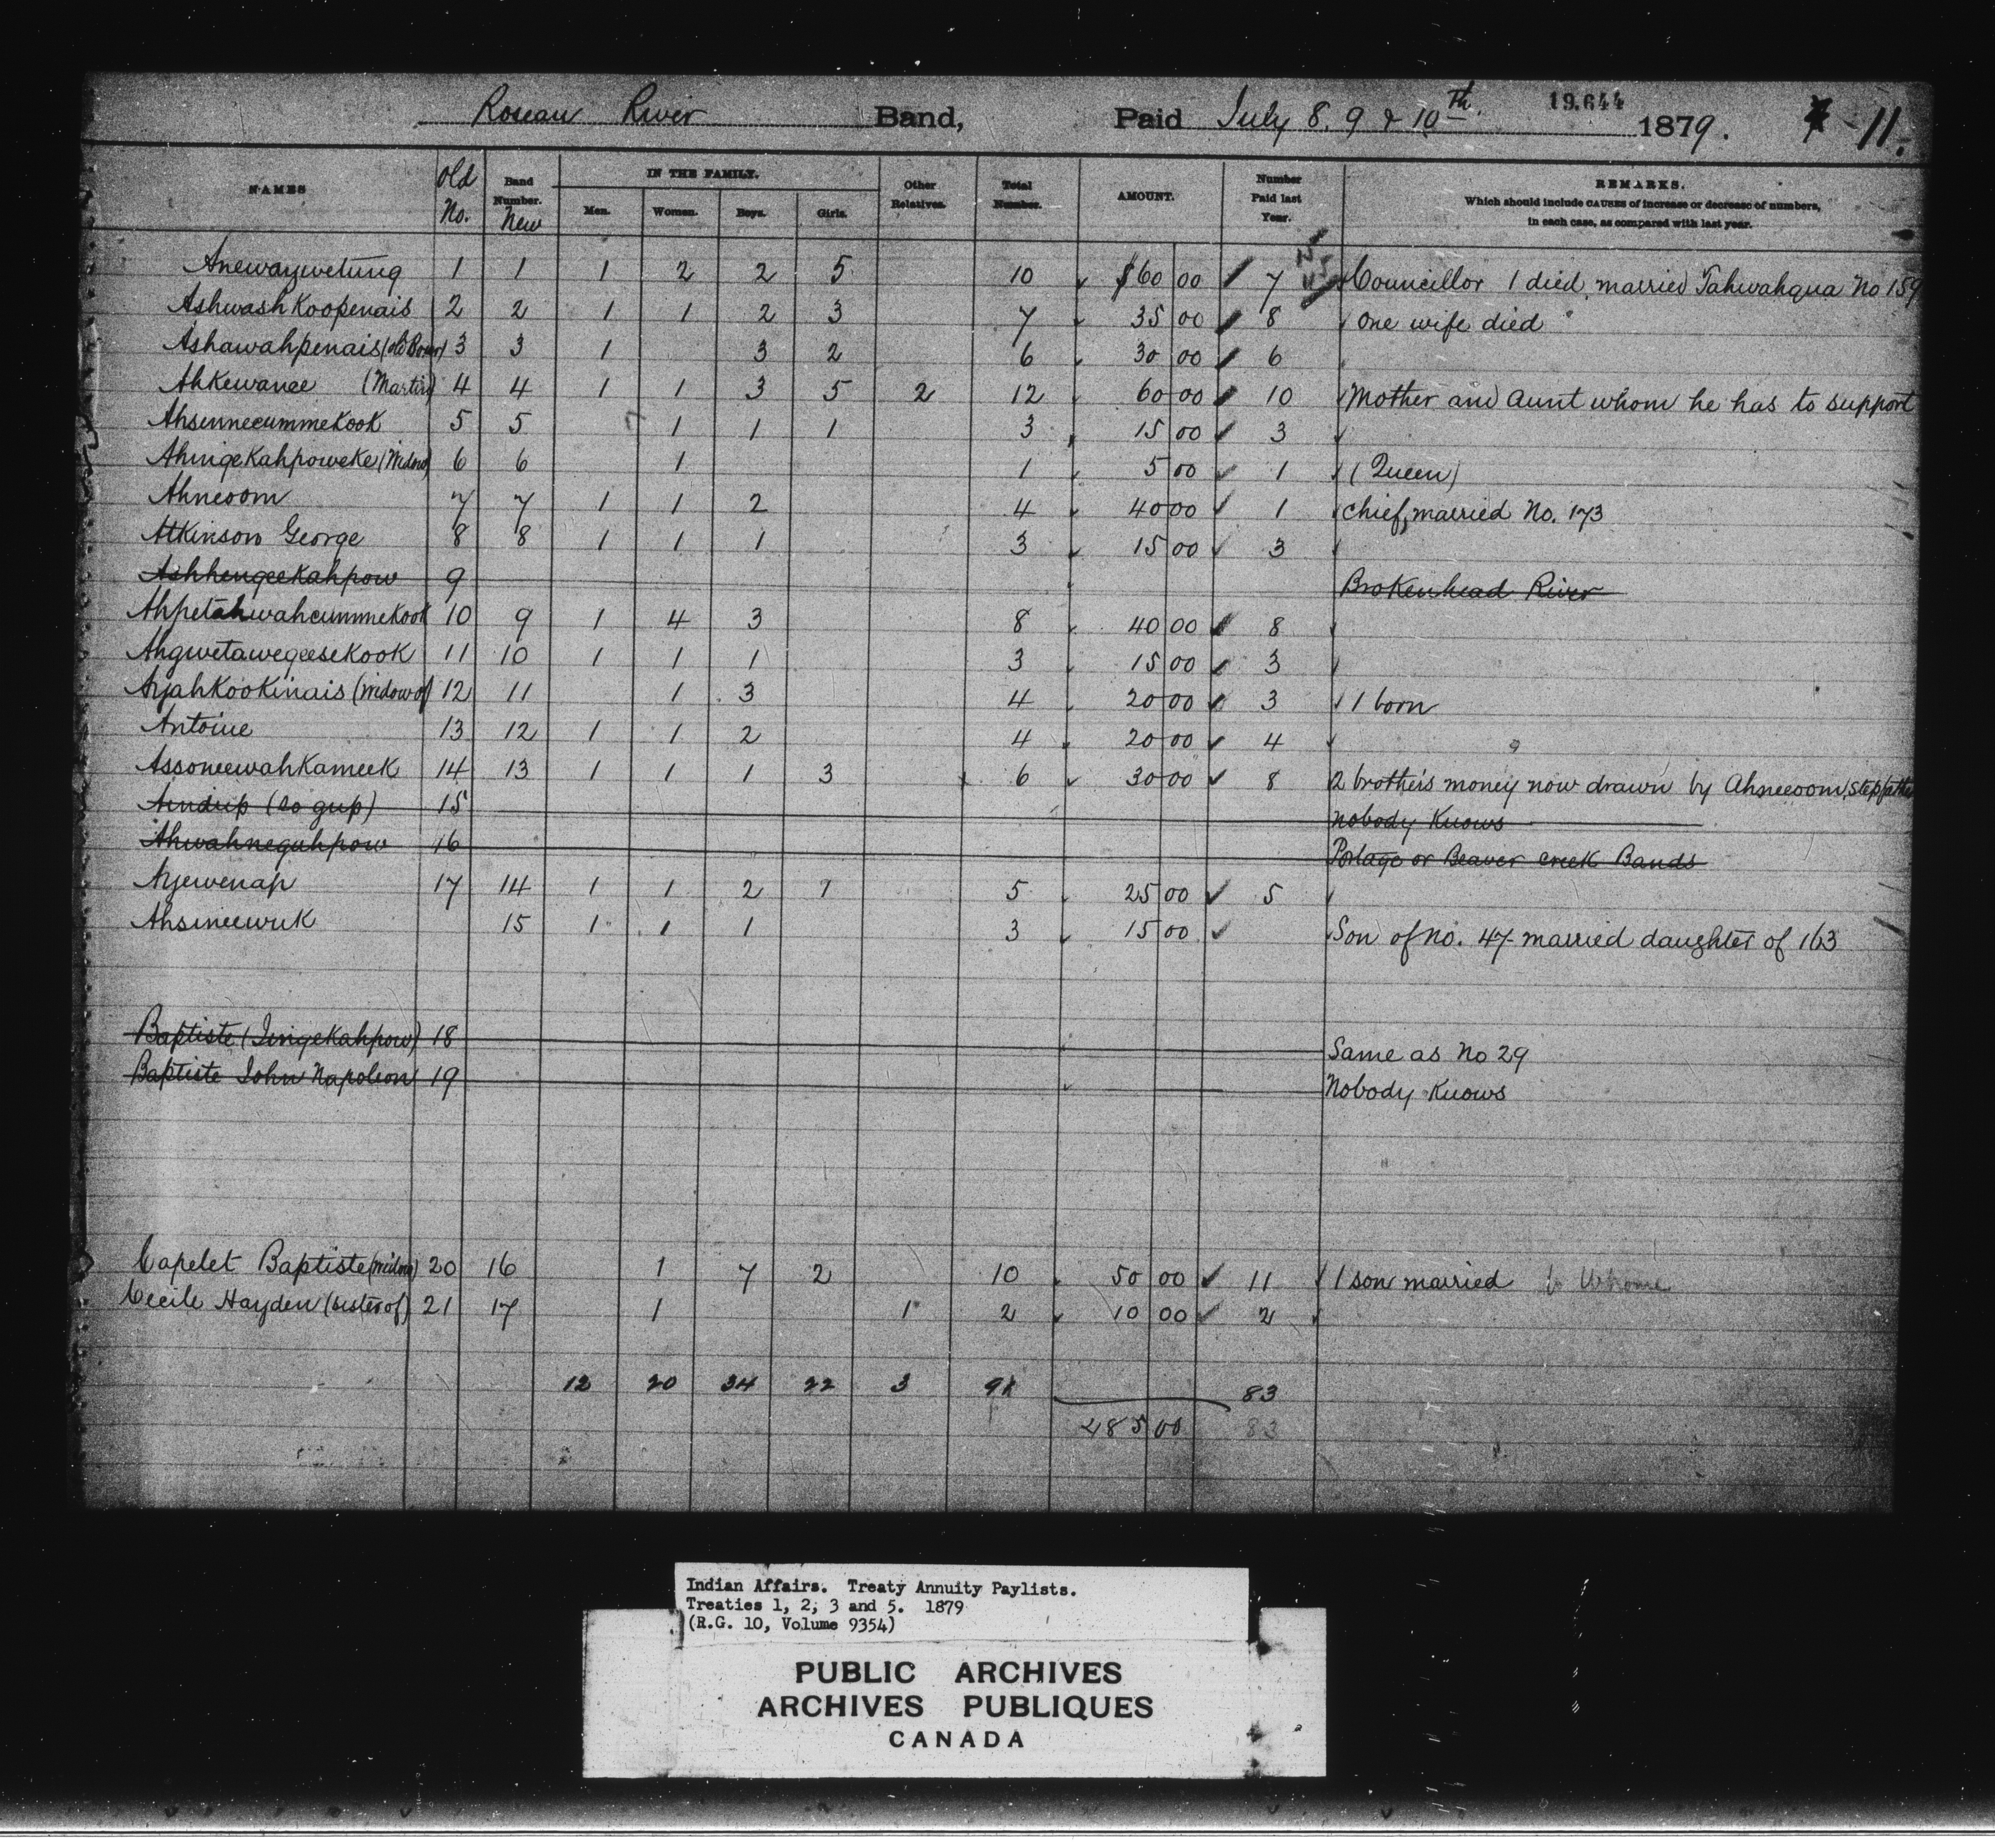 Roseau River Band, Paid July 8, 9 & 10th 19,644 1879. -11.
NAMES Old No. Band Number. New IN THE FAMILY. Men. Women. Boys. Girls. Other Relatives. Total Number. AMOUNT. Number Paid last Year. REMARKS.
Which should include CAUSES of increase or decrease of numbers,
in each case, as compared with last year.
Anewaywetung 1 1 1 2 2 5 10 $60 00 7 Councillor 1 died, married Tahwahqua No 159
AshwashKoopenais 2 2 1 1 2 3 7 35 00 8 One wife died
Ashawahpenais 3 3 1 3 2 6 30 00 6
Ahkewance (Martin) 4 4 1 1 3 5 2 12 60 00 10 Mother and Aunt whom he has to support
AhsinneecummeKook 5 5 1 1 1 3 15 00 3
AhingeKahpoweke (Widow) 6 6 1 1 5 00 1 (Queen)
Ahneoom 7 7 1 1 2 4 40 00 1 Chief, married No. 173
Atkinson George 8 8 1 1 1 3 15 00 3
AshhengeeKahpow 9 Brokenhead River
AhpetahwahcummeKook 10 9 1 4 3 8 40 00 8
AhgwetawegeeseKook 11 10 1 1 1 3 15 00 3
AyahKooKinais (Widow of) 12 11 1 3 4 20 00 3 1 born
Antoine 13 12 1 1 2 4 20 00 4
AssoneewahKameek 14 13 1 1 1 3 6 30 00 8 2 brothers money now drawn by Ahneeoom, Stepfather
Aindup (Zo gup) 15 Nobody Knows
Ahwahneguhpow 16 Portage or Beaver Creek Bands
Ayewenap 17 14 1 1 2 1 5 25 00 5
Ahsineewuk 15 1 1 1 3 15 00 Son of No. 47 married daughter of 163
Baptiste (JingeKahpow) 18 Same as No 29
Baptiste John Napoleon 19 Nobody Knows
Capelet Baptiste (Widow) 20 16 1 7 2 10 50 00 11 1 son married to Whome
Cecile Hayden (sister of) 21 17 1 1 2 10 00 2
12 20 34 22 3 91 83
485 00 83
Indian Affairs. Treaty Annuity Paylists.
Treaties 1, 2, 3 and 5. 1879
(R.G. 10, Volume 9354)
PUBLIC ARCHIVES
ARCHIVES PUBLIQUES
CANADA